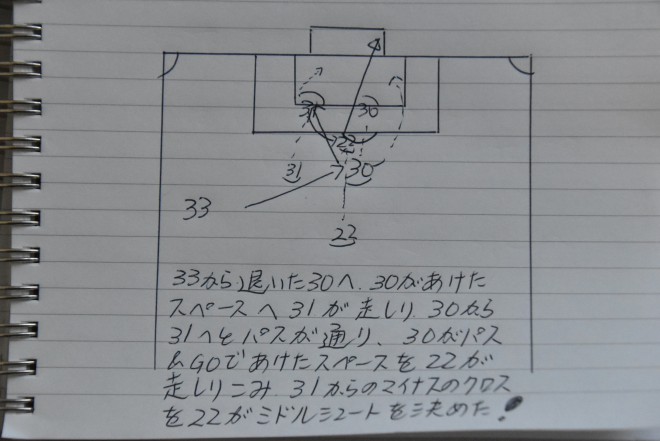 31 30
22
31 30
33
22
33から退いた30へ、30があけた
スペースへ31が走しり、30から
31へとパスが通り、30がパス
&GOであけたスペースを22が
走しりこみ、31からのマイナスのクロス
を22がミドルシュートを決めた!